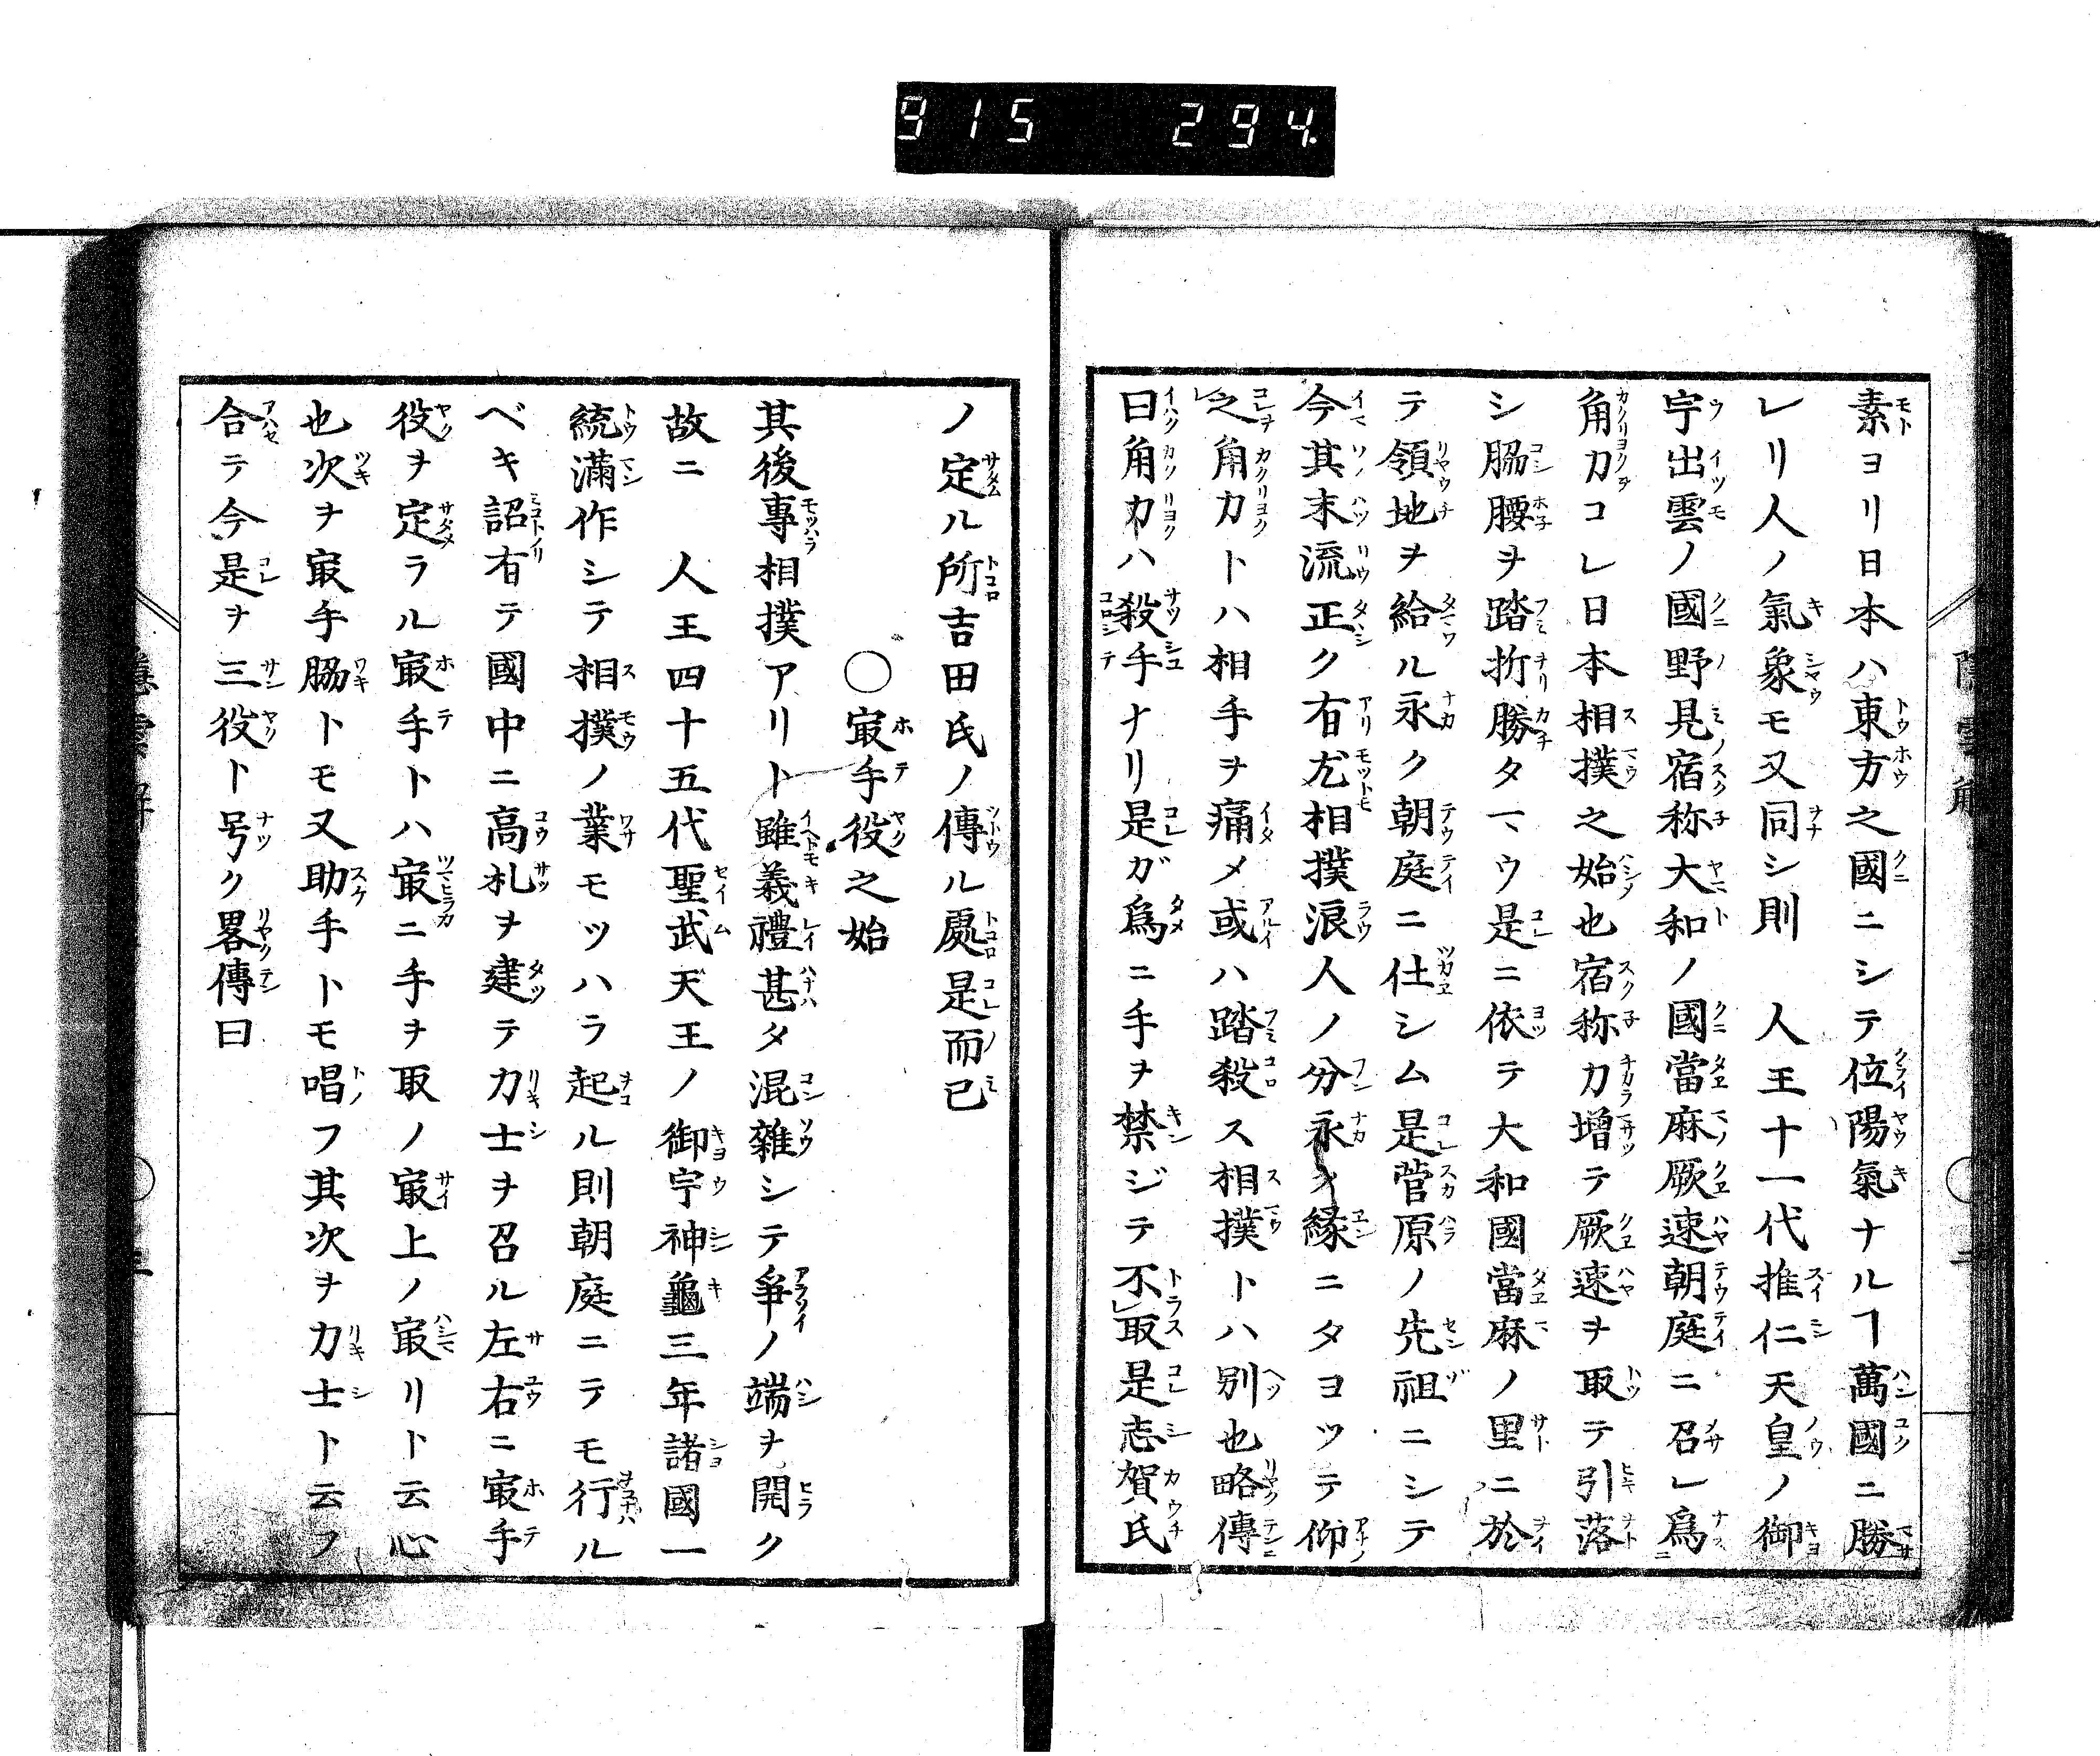 915 294
素ヨリ日本ハ東方之國ニシテ位陽氣ナルヿ萬國ニ勝
レリ人ノ氣象モ又同シ則　人王十一代推仁天皇ノ御
宇出雲ノ國野見宿称大和ノ國當麻厥速朝庭ニ召レ爲
角力コレ日本相撲之始也宿称力増テ厥速ヲ取テ引落
シ脇腰ヲ踏折勝タマウ是ニ依テ大和國當麻ノ里ニ於
テ領地ヲ給ル永ク朝庭ニ仕シム是菅原ノ先祖ニシテ
今其末流正ク有尤相撲浪人ノ分永ク縁ニタヨツテ仰
之角力トハ相手ヲ痛メ或ハ踏殺ス相撲トハ別也略傳
曰角力ハ殺手ナリ是ガ爲ニ手ヲ禁ジテ不取是志賀氏
ノ定ル所吉田氏ノ傳ル處是而已
○冣手役之始
其後專相撲アリト雖義禮甚タ混雜シテ爭ノ端ヲ開ク
故ニ　人王四十五代聖武天王ノ御宇神龜三年諸國一
統滿作シテ相撲ノ業モツハラ起ル則朝庭ニテモ行ル
ベキ詔有テ國中ニ高札ヲ建テ力士ヲ召ル左右ニ冣手
役ヲ定ラル冣手トハ冣ニ手ヲ取ノ冣上ノ冣リト云心
也次ヲ冣手脇トモ又助手トモ唱フ其次ヲ力士ト云フ
合テ今是ヲ三役ト号ク畧傳曰